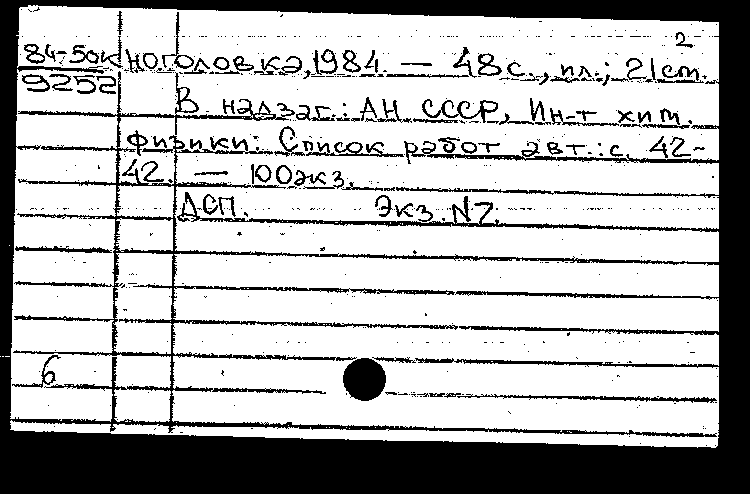 2
84-50к
9252
ноголовка, 1984. — 48 с., ил.; 21 cm.
В надзаг.: АН СССР, Ин-т хим.
физики: Список работ авт.: с. 42-
42. — 100 экз.
ДСП. Экз. N7.
6